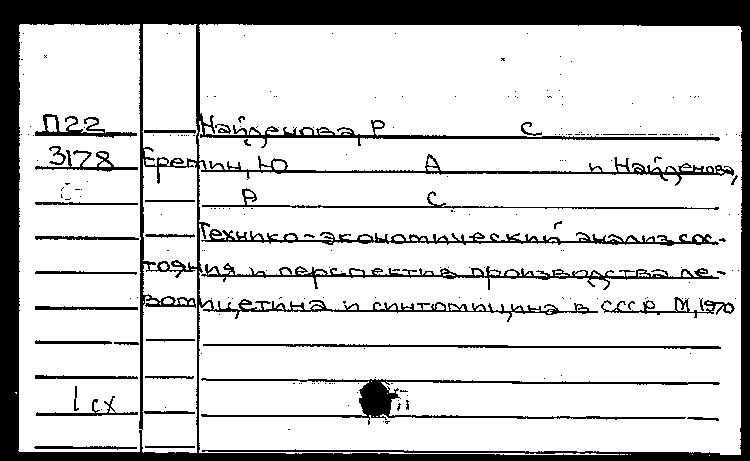 П22 Найденова, Р С
3178 Еремин, Ю А и Найденова,
Р С
Технико-экономический анализ сос-
тояния и перспектив производства ле-
вомицетина и синтомицина в СССР. М, 1970
1 сх